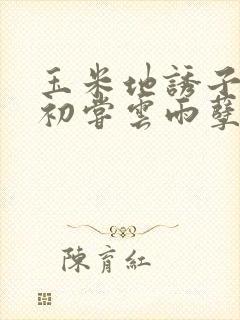 玉米地誘子
初嘗雲雨孽
陳育紅